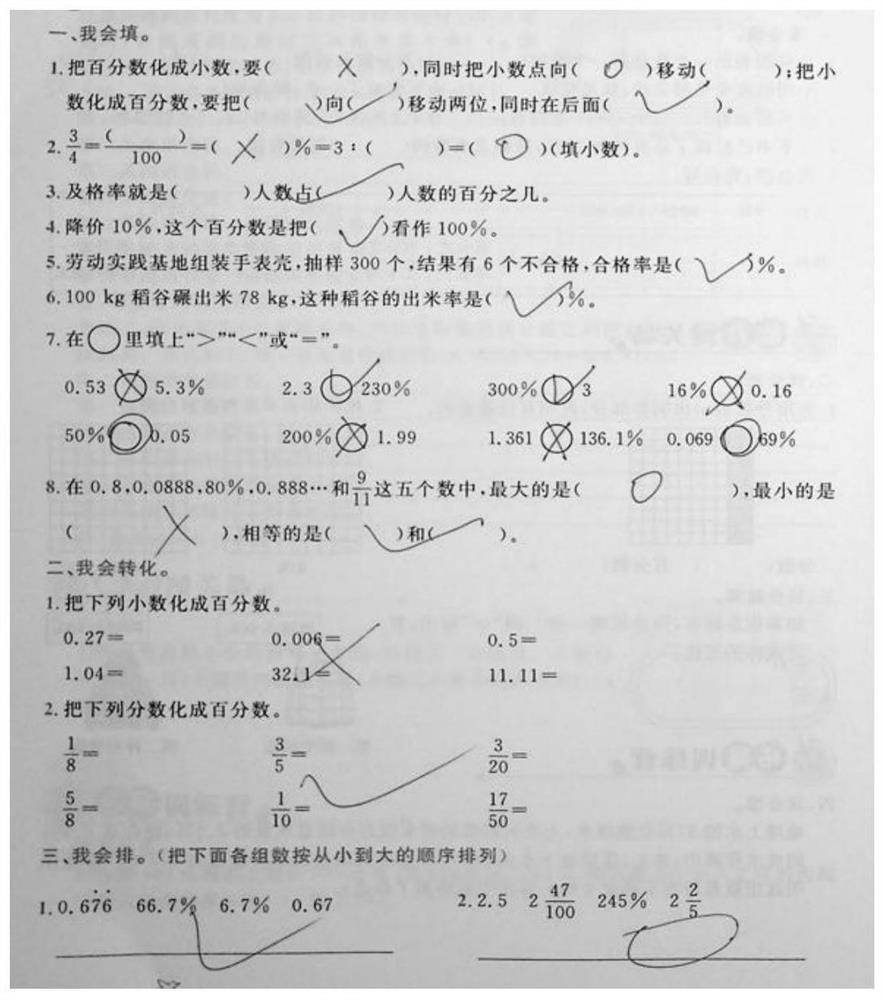 一、我会填。
1.把百分数化成小数,要( ),同时把小数点向( )移动( );把小
数化成百分数,要把( )向( )移动两位,同时在后面( )。
2. 3/4=( )/100=( )%=3:( )=( )(填小数)。
3.及格率就是( )人数占( )人数的百分之几。
4.降价10%,这个百分数是把( )看作100%。
5.劳动实践基地组装手表壳,抽样300个,结果有6个不合格,合格率是( )%。
6.100 kg稻谷碾出米78 kg,这种稻谷的出米率是( )%。
7.在○里填上“>”“<”或“=”。
0.53○5.3% 2.3○230% 300%○3 16%○0.16
50%○0.05 200%○1.99 1.361○136.1% 0.069○69%
8.在0.8,0.0888,80%,0.888…和9/11这五个数中,最大的是( ),最小的是
( ),相等的是( )和( )。
二、我会转化。
1.把下列小数化成百分数。
0.27= 0.006= 0.5=
1.04= 32.1= 11.11=
2.把下列分数化成百分数。
1/8= 3/5= 3/20=
5/8= 1/10= 17/50=
三、我会排。(把下面各组数按从小到大的顺序排列)
1.0.67̇6̇ 66.7% 6.7% 0.67 2.2.5 2 47/100 245% 2 2/5